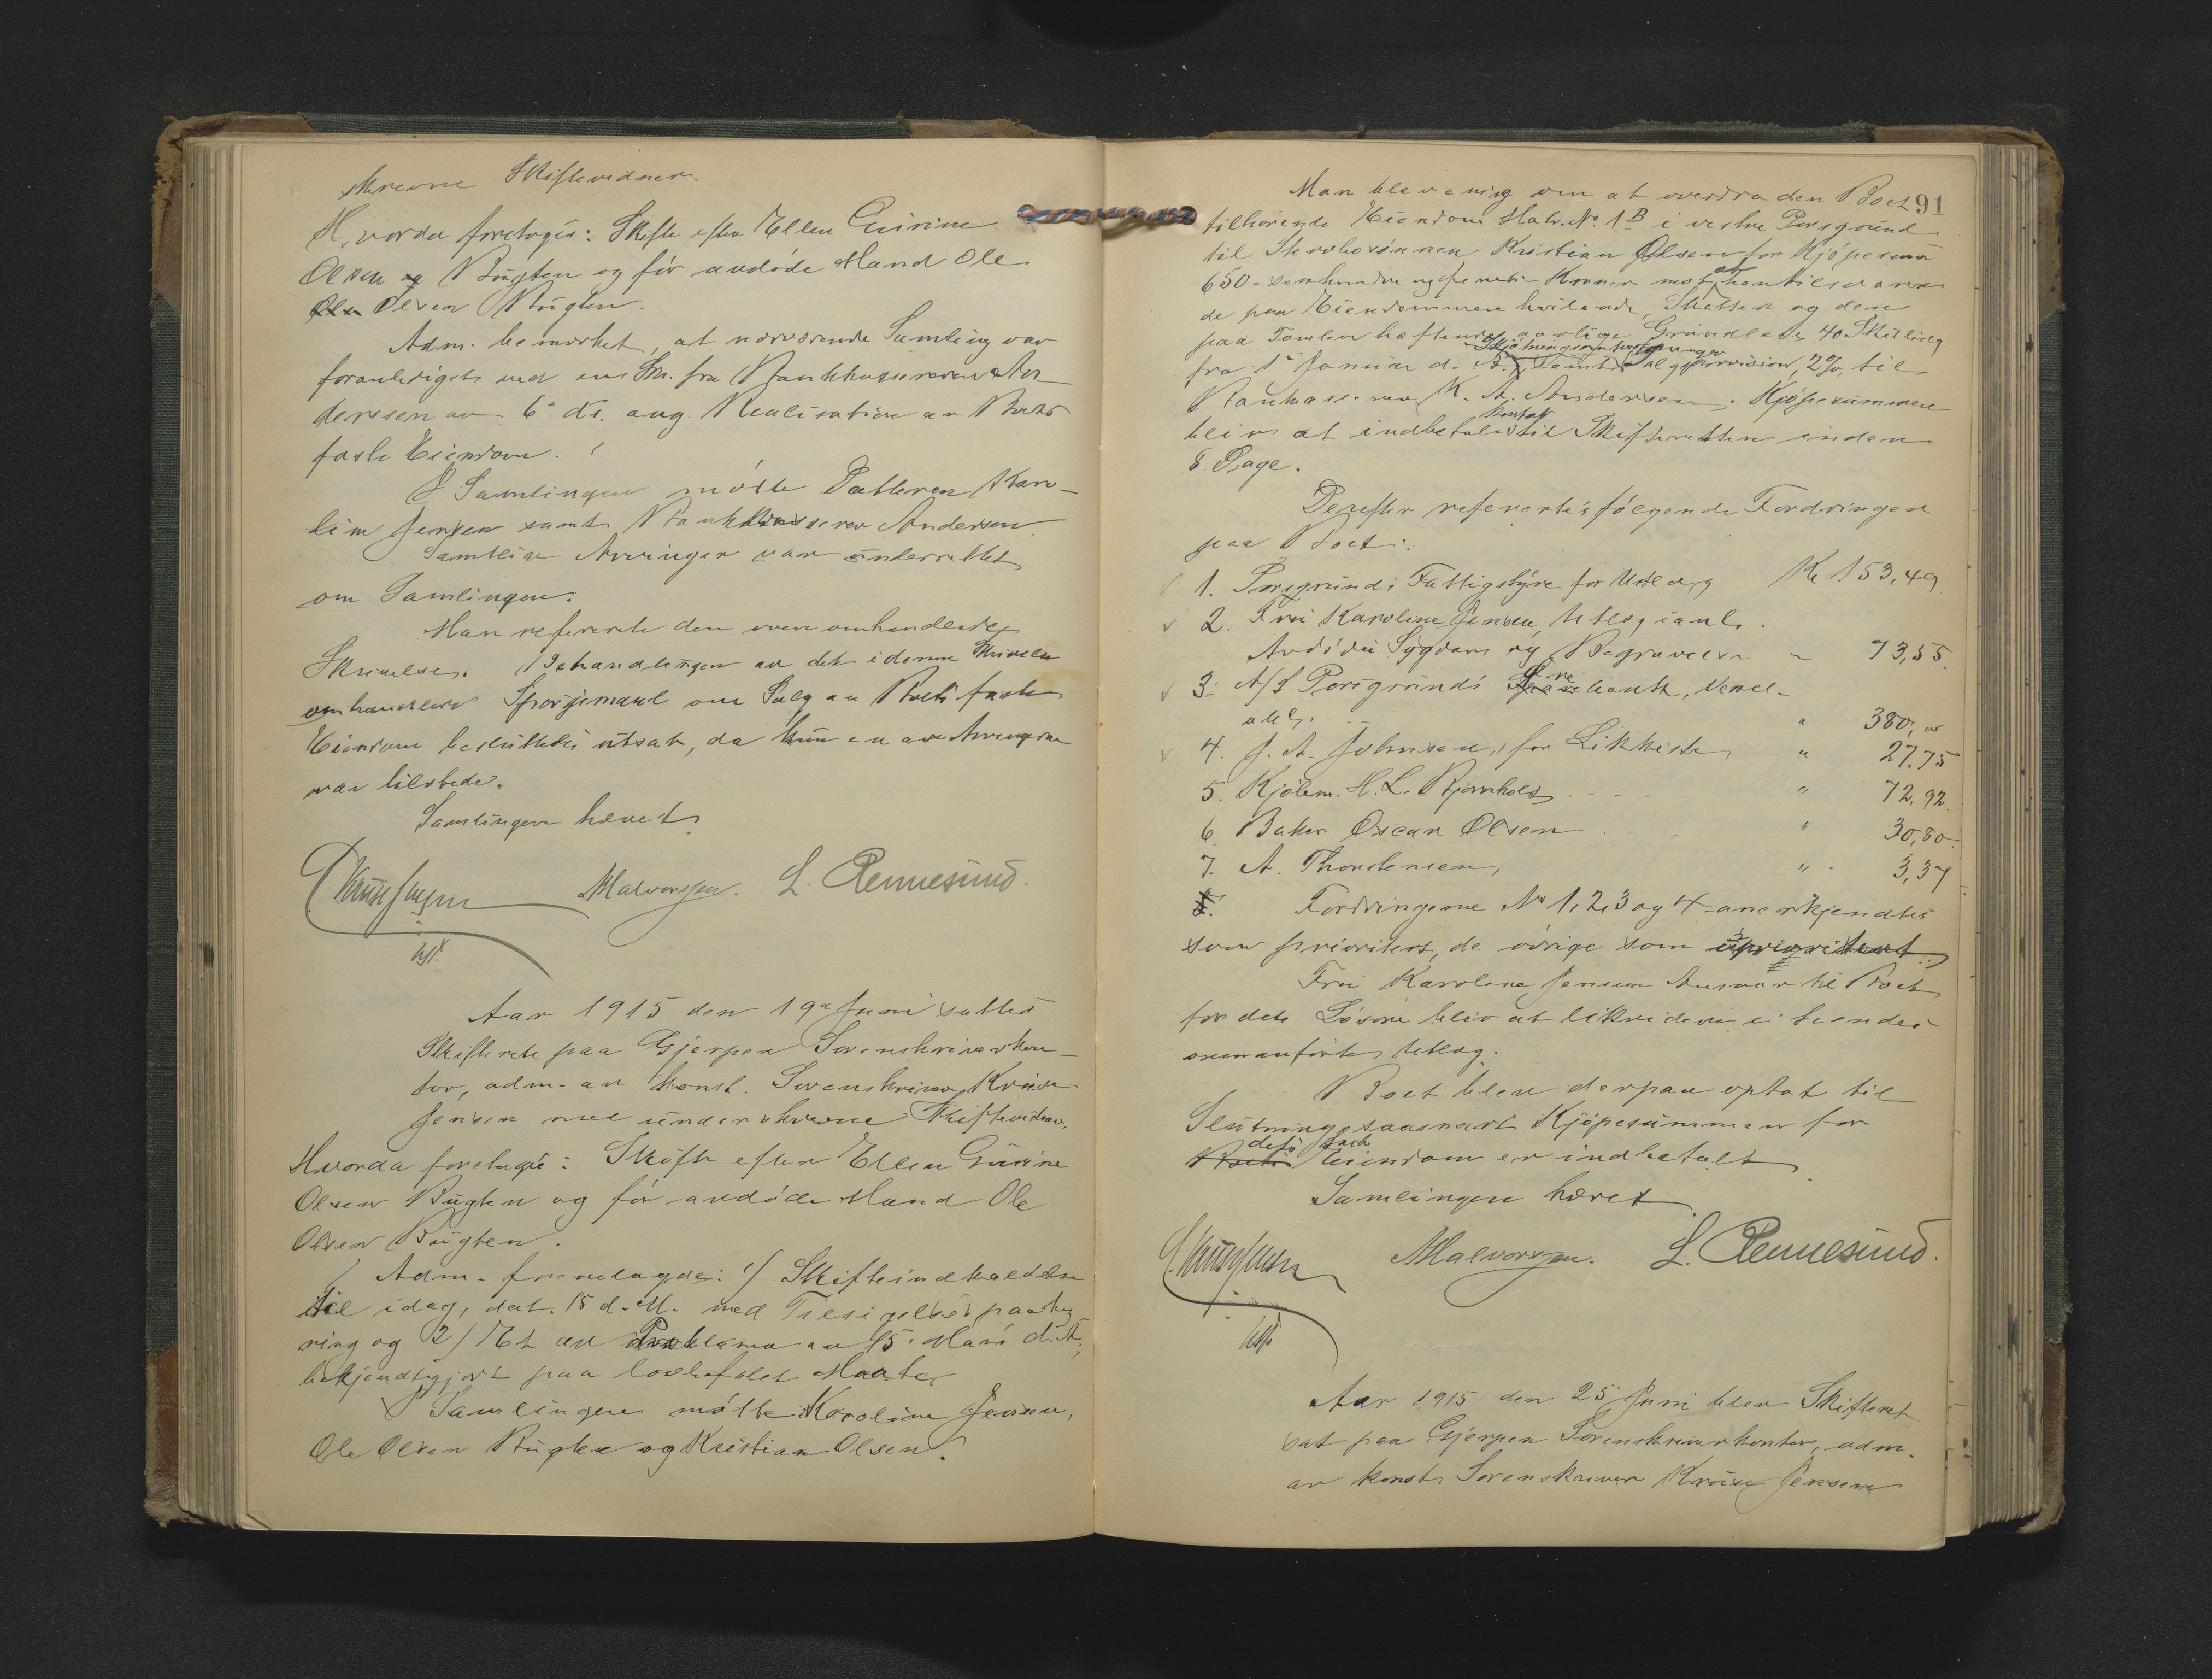 skrevne Skiftevidner.
Hvorda foretoges: Skifte efter Ellen Gurine
Olsen Bugten og før avdøde Mand Ole
Olsen Bugten.
Adm. bemerket, at nærværende Samling var
foranlediget ved en Skr. fra Bankkasserer An-
dersen av 6te ds. ang. Realisation av Boets
faste Eiendom.
I Samlingen møtte Datteren Karo-
line Jensen samt Bankkasserer Andersen.
Samtlige Arvinger var underrettet
om Samlingen.
Man refererte den ovenomhandlede
Skrivelse. Behandlingen av det i denne Skrivelse
omhandlede Spørsmaal om Salg av Boets faste
Eiendom besluttedes utsat, da kun en av Arvingerne
var tilstede.
Samlingen hævet
Kruse Jensen
Halvorsen. L. Rennesund.
kst.
Aar 1915 den 19de Juni sattes
Skifteret paa Gjerpen Sorenskriverkon-
tor, adm. av konst. Sorenskriver Kruse
Jensen med underskrevne Skiftevidner.
Hvorda foretoges: Skifte efter Ellen Gurine
Olsen Bugten og før avdøde Mand Ole
Olsen Bugten.
Adm. fremlagde: 1/ Skifteindkaldelse
til idag, dat. 15 d. M. med Tilsigelses paateg
ning og 2/ Et av Proklama av 15. Mars d. A.,
bekjendtgjort paa lovbefalet Maate.
I Samlingen møtte Karoline Jensen,
Ole Olsen Bugten og Kristian Olsen.
91
Man blev enig om at overdra den Boet
tilhørende Eiendom Matr. No. 1B i vestre Porsgrund
til Stervbosønnen Kristian Olsen for Kjøpesum
650 - sekshundrede og femti - Kroner mot at han tilsvarer
de paa Eiendommen hvilende Skatter og den
paa Tomten heftende aarlige Grundleie 40 Skilling
fra 1ste Januar d. A., Skjøtningsomkostninger samt Salgsprovision, 2%, til
Bankkasserer K. A. Andersen. Kjøpesummen
blir at indbetale kontant til Skifteretten inden
8 Dage.
Derefter refertes følgende Fordringer
paa Boet:
1. Porsgrunds Fattigstyre for Utlæg Kr 153,49
2. Fru Karoline Jensen, Utlæg i anl.
Avdødes Sygdom og Begravelse " 73,55.
3. A/S Porsgrunds Sparebank, Veksel-
obl. " 380,00
4. J. A. Johnsen, for Likkiste, " 27.75
5. Kjøbm. H. L. Bjørnholt " 72,92.
6. Baker Oscar Olsen " 30,80
7. A. Thorstensen, " 3,37
Fordringerne No 1, 2, 3 og 4 anerkjendtes
som prioritert, de øvrige som uprioritert.
Fru Karoline Jensens Ansvar til Boet
for dets Løsøre blir at likvidere i hendes
ovenanførte Utlæg.
Boet blev derpaa optat til
Slutning saasnart Kjøpesummen for
dets faste Eiendom er indbetalt.
Samlingen hævet
Kruse Jensen Halvorsen. L. Rennesund.
kst.
Aar 1915 den 25 Juni blev Skifteret
sat paa Gjerpen Sorenskriverkontor, adm.
av konst. Sorenskriver Kruse Jensen